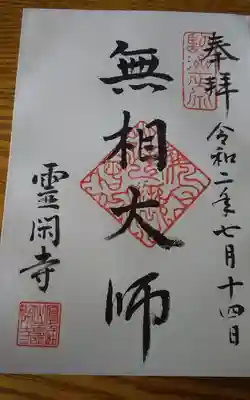 奉拝 令和二年七月十四日
無相大師
霊閑寺